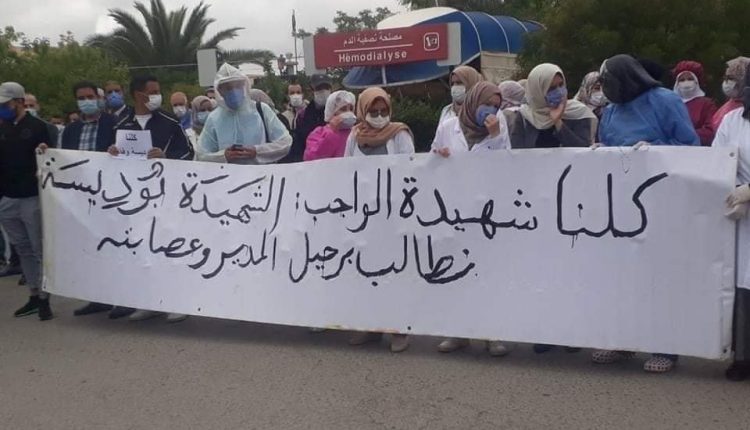 مصلحة تصفية الدم
Hémodialyse
كلنا
كلنا شهيدة الواجب: الشهيدة بوديسة
نطالب برحيل المدير وعصابته